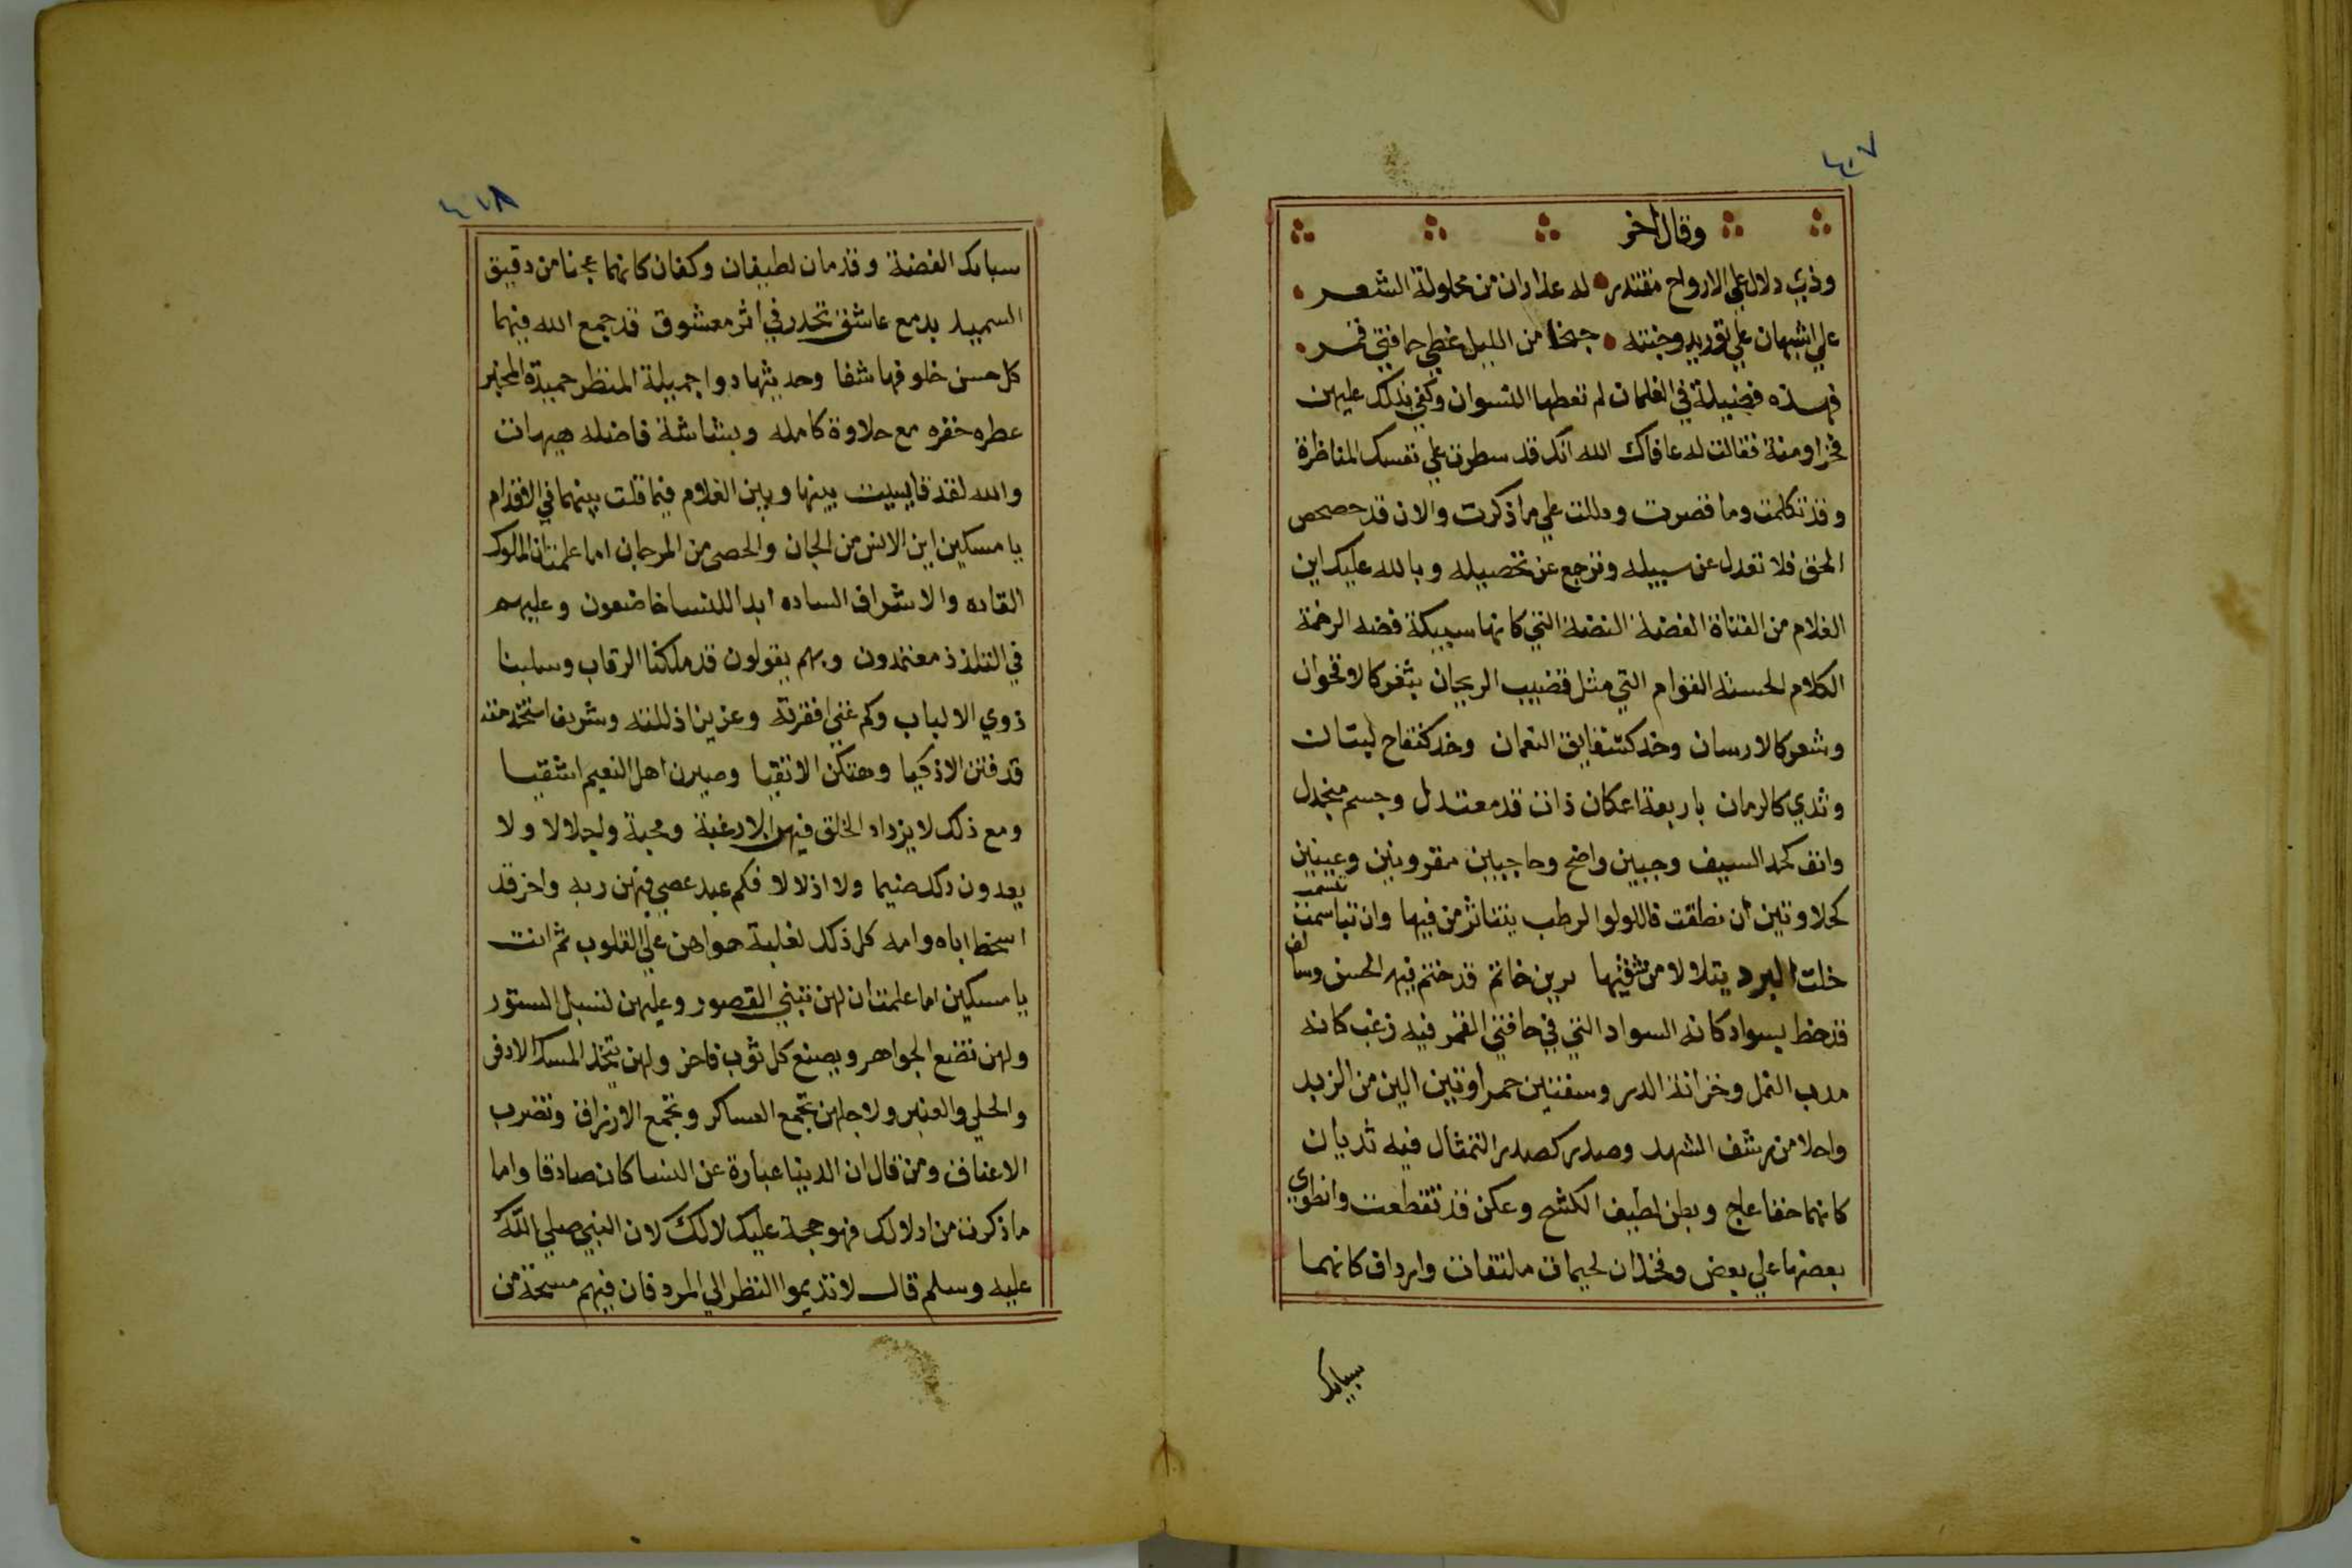 ٤٠٧
وقال اخر
وذي دلال علي الارواح مقتدر له عذاران من محاولة الشعر
علي اشبهان علي توريد وجنته جنحا من الليل غطي حافتي قمر
فهذه فضيلة في الغلمان لم تعطها النسوان وكفي بذلك عليهن
فخرا ومنة فقالت له عافاك الله انك قد سطرت علي نفسك المناظرة
وقد تكلمت وما قصرت ودللت علي ما ذكرت والان قد حصحص
الحق فلا تعدل عن سبيله وترجع عن تحصيله وبالله عليك اين
الغلام من الفتاة الغضة البضة التي كانها سبيكة فضه الرخمة
الكلام الحسنه القوام التي مثل قضيب الريحان بثغر كالاقحوان
وشعر كالارسان وخد كشقايق النعمان وخد كتفاح لبنان
وثدي كالرمان باربعة اعكان ذات قد معتدل وجسم منجدل
وانف كحد السيف وجبين واضح وحاجبين مقرونين وعينين
كحلاوتين ان نطقت فاللولو الرطب يتناثر من فيها وان تباسمت تبسمت
خلت البرد يتلالا من شفيتها برين خاتم قد ختم فيه الحسن وسالف
قد خط بسواد كانه السواد التي في حافتي القمر فيه زغب كانه
مدب النمل وخزانة الدر وسفتين حمراوتين الين من الزبد
واحلا من رشف الشهد وصدر كصدر التمثال فيه ثديان
كانهما حقا عاج وبطن لطيف الكشح وعكن قد تقطعت وانطوي
بعضها علي بعض وفخذان لحيمان ملتقات وارداف كانهما
سبايك
٤٠٨
سبايك الفضة وقدمان لطيفان وكفان كانهما عجنا من دقيق
السميد بدمع عاشق تحدر في أثر معشوق قد جمع الله فيهما
كل حسن خلو فها شفا وحديثها دوا جميلة المنظر حميدة المخبر
عطره خفره مع حلاوة كامله وبشاشة فاضله هيهات
والله لقد قايست بينها وبين الغلام فيما قلت بينهما في الاقدام
يا مسكين اين الانس من الجان والحصي من المرجان اما علمت ان الملوك
القاده والاشراف الساده ابدا للنسا خاضعون وعليهم
في التلذذ معتمدون وبهم يقولون قد ملكنا الرقاب وسلبنا
ذوي الالباب وكم غني افقرته وعزيز اذللته وشريف استخدمته
قد فتن الاذكيا وهتكن الاتقيا وصيرن اهل النعيم اشقيا
ومع ذلك لا يزداد الخلق فيهن الا رغبة ومحبة واجلالا ولا
يعدون ذلك ضيما ولا اذلالا فكم عبد عصي فيهن ربه واخر قد
اسخط اباه وامه كل ذلك لغلبة هواهن علي القلوب ثم انت
يا مسكين اما علمت ان لهن تبني القصور وعليهن تسبل الستور
ولهن تضع الجواهر ويصنع كل ثوب فاخر ولهن يتخذ المسك الادفر
والحلي والعنبر ولاجلهن تجمع العساكر وتجمع الارزاق وتضرب
الاعناق ومن قال ان الدنيا عبارة عن النسا كان صادقا واما
ما ذكرت من ادلالك فهو حجة عليك لا لك لان النبي صلي الله
عليه وسلم قال لا تديموا النظر الي المرد فان فيهم مسحة من